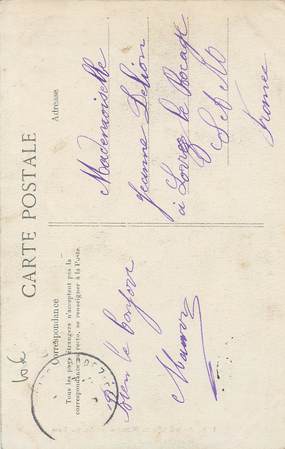 CARTE POSTALE
Correspondance
Tous les pays étrangers n'acceptent pas la
correspondance au recto, se renseigner à la Poste.
Adresse
bien le bonjour
Mademoiselle
Jeanne Delion
à Lorrez le Bocage
S et M
France